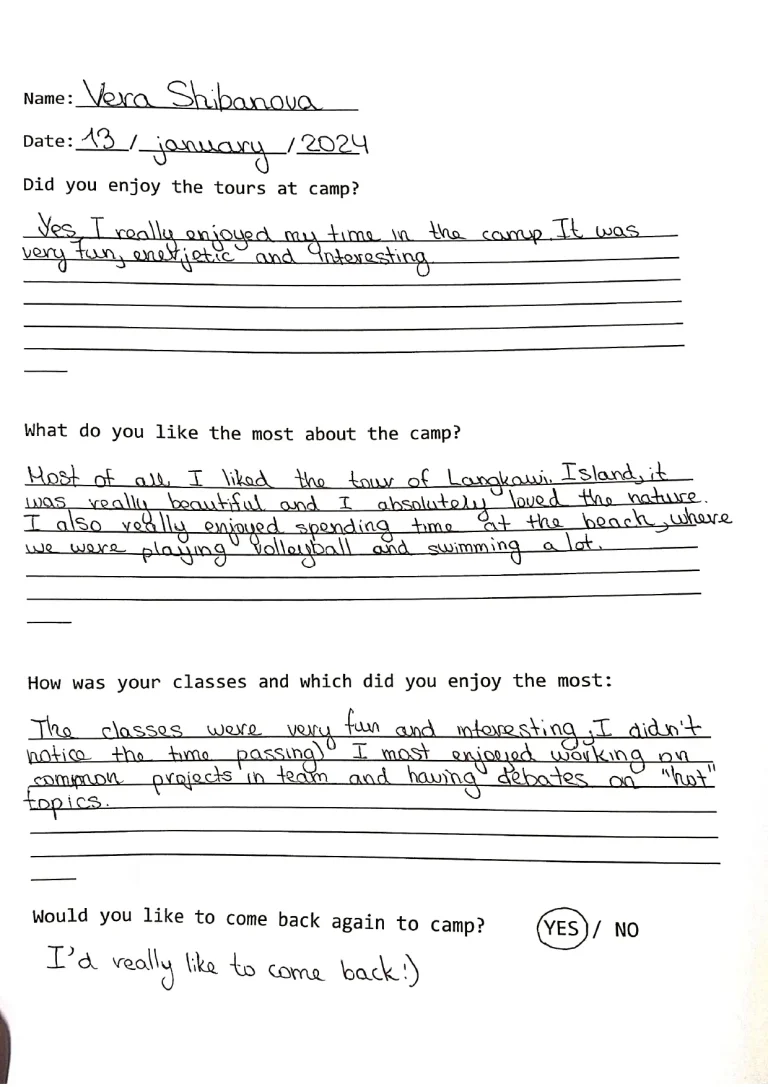 Name: Vera Shibanova
Date: 13 / january / 2024
Did you enjoy the tours at camp?
Yes, I really enjoyed my time in the camp. It was
very fun, enerjetic and interesting
What do you like the most about the camp?
Most of all, I liked the tour of Langkawi Island, it
was really beautiful and I absolutely loved the nature.
I also really enjoyed spending time at the beach, where
we were playing volleyball and swimming a lot.
How was your classes and which did you enjoy the most:
The classes were very fun and interesting, I didn't
notice the time passing) I most enjoyed working on
common projects in team and having debates on "hot"
topics.
Would you like to come back again to camp? YES / NO
I'd really like to come back!)